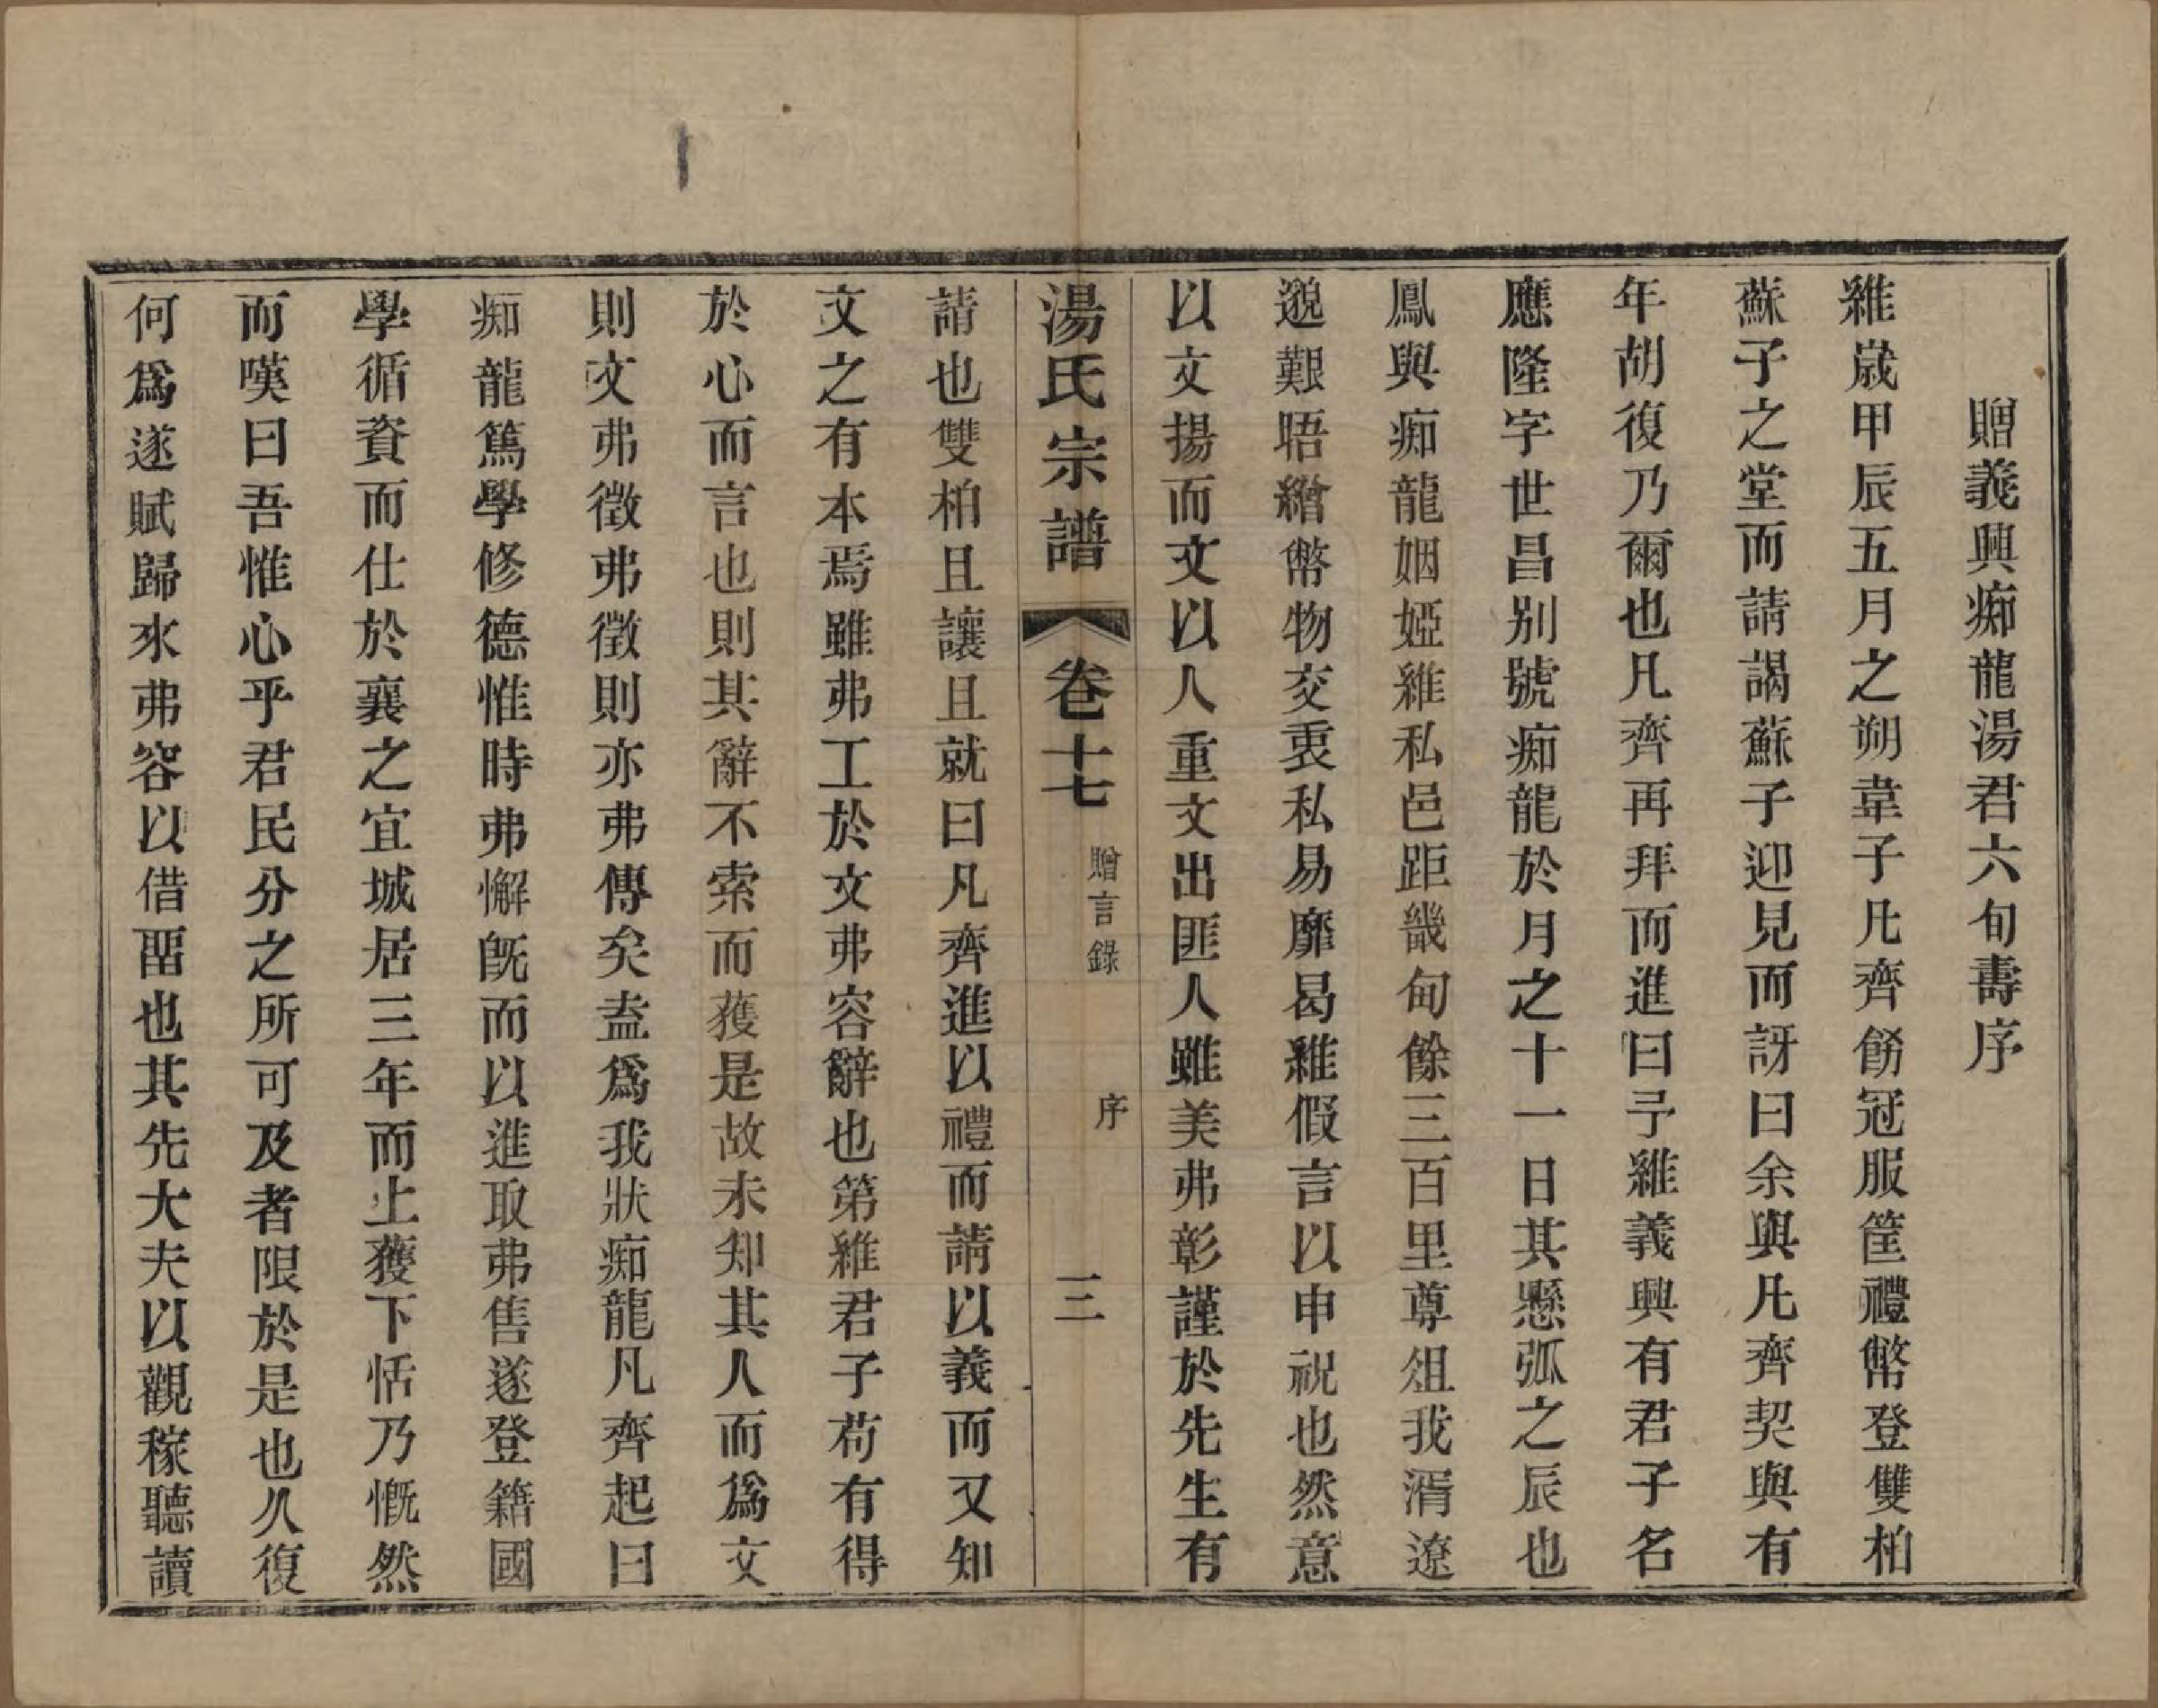 贈義興痴龍湯君六旬壽序
維歲甲辰五月之朔韋子凡齊餝冠服筐禮幣登雙柏
蘇子之堂而請謁蘇子迎見而訝曰余與凡齊契與有
年胡復乃爾也凡齊再拜而進曰予維義興有君子名
應隆字世昌别號痴龍於月之十一日其懸弧之辰也
鳳與痴龍姻婭維私邑距畿甸餘三百里尊俎我湑遼
邈艱晤繒幣物交衷私易靡曷維假言以申祝也然意
以文揚而文以人重文出匪人雖美弗彰謹於先生有
湯氏宗譜 卷十七 贈言錄 序 三
請也雙柏且讓且就曰凡齊進以禮而請以義而又知
文之有本焉雖弗工於文弗容辭也第維君子苟有得
於心而言也則其辭不索而獲是故未知其人而爲文
則文弗徵弗徵則亦弗傳矣盍爲我狀痴龍凡齊起曰
痴龍篤學修德惟時弗懈旣而以進取弗售遂登籍國
學循資而仕於襄之宜城居三年而上獲下恬乃慨然
而嘆曰吾惟心乎君民分之所可及者限於是也乆復
何爲遂賦歸來弗容以借畱也其先大夫以觀稼聽讀